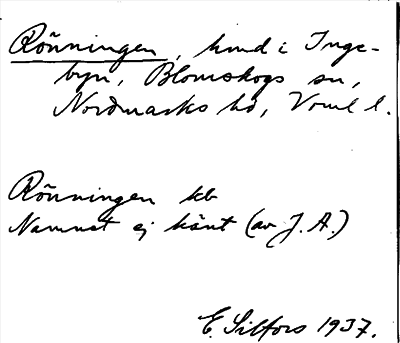 Rönningen, hmd i Inge-
byn, Blomskogs sn,
Nordmarks hd, Vrml l.
Rönningen kb
Namnet ej känt (av J. A.)
E. Silfors 1937.